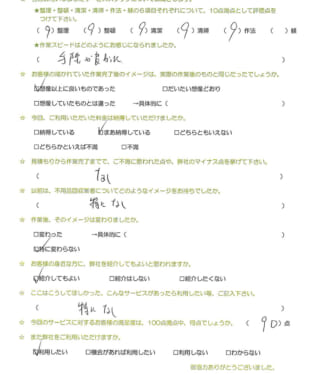 ★整理・整頓・清潔・清掃・作法・躾の6項目それぞれについて、10点満点として評価点を
つけて下さい。
（ 9 ）整理 （ 9 ）整頓 （ 9 ）清潔 （ 9 ）清掃 （ 9 ）作法 （ ）躾
★作業スピードはどのようにお感じになられましたか。
（ ）
☆ お客様の描かれていた作業完了後のイメージは、実際の作業後のものと同じだったでしょうか。
☑想像以上に良いものであった □だいたい想像どおり
□想像していたものとは違った →具体的に（ ）
☆ 今回、ご利用いただいた料金は納得していただけましたか。
□納得している ☑まあ納得している □どちらともいえない
□どちらかといえば不満 □不満
☆ 見積もりから作業完了までで、ご不満に思われた点や、弊社のマイナス点を挙げて下さい。
（ なし ）
☆ 以前は、不用品回収業者についてどのようなイメージをお持ちでしたか。
（ 特になし ）
☆ 作業後、そのイメージは変わりましたか。
□変わった →具体的に（ ）
☑特に変わらない
☆ お客様の身近な方に、弊社を紹介してもよいと思われますか。
☑紹介してもよい □紹介はしない □紹介したくない
☆ ここはこうしてほしかった、こんなサービスがあったら利用したい等、ご記入下さい。
（ 特になし ）
☆ 今回のサービスに対するお客様の満足度は、100点満点中、何点でしょうか。（ 90 ）点
☆ また弊社をご利用いただけますか。
☑利用したい □機会があれば利用したい □利用しない □わからない
御協力ありがとうございました。